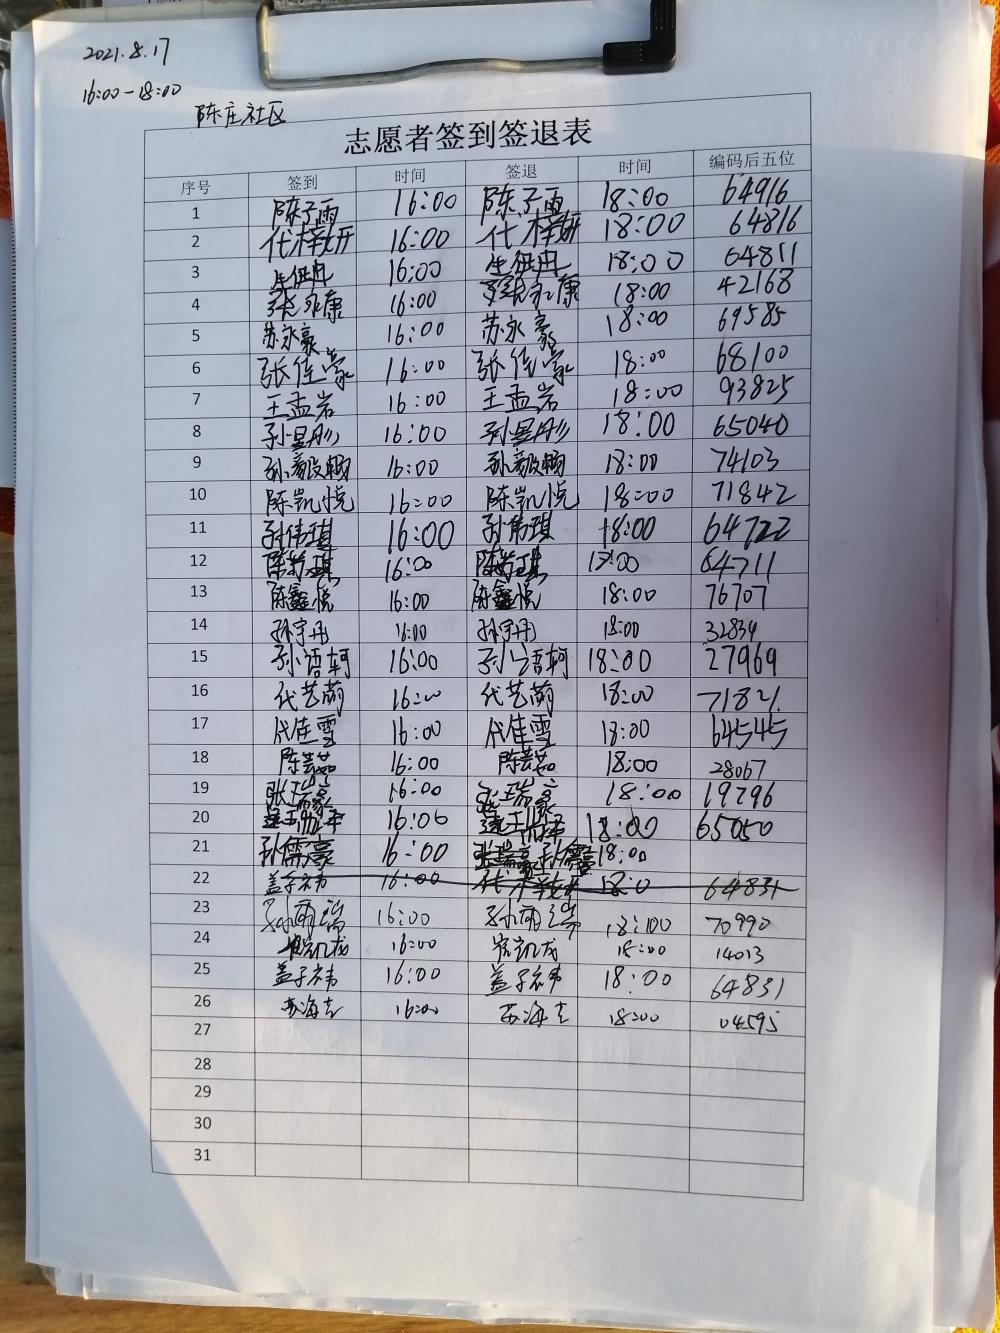 2021.8.17
16:00-18:00
陈庄社区
志愿者签到签退表
序号 签到 时间 签退 时间 编码后五位
1 陈子雨 16:00 陈子雨 18:00 64916
2 代梓妍 16:00 代梓妍 18:00 64816
3 16:00 18:00 64811
4 张永康 16:00 张永康 18:00 42168
5 苏永豪 16:00 苏永豪 18:00 69585
6 张佳豪 16:00 张佳豪 18:00 68100
7 王孟岩 16:00 王孟岩 18:00 93825
8 孙昱彤 16:00 孙昱彤 18:00 65040
9 孙毅畅 16:00 孙毅畅 18:00 74103
10 陈凯悦 16:00 陈凯悦 18:00 71842
11 孙伟琪 16:00 孙伟琪 18:00 64722
12 16:00 64711
13 陈鑫悦 16:00 陈鑫悦 18:00 76707
14 孙宇丹 16:00 孙宇丹 18:00 32834
15 孙语轲 16:00 孙语轲 18:00 27969
16 代艺萌 16:00 代艺萌 18:00 71821
17 代佳雪 16:00 代佳雪 18:00 64545
18 陈芸茹 16:00 陈芸茹 18:00 28067
19 张瑞豪 16:00 张瑞豪 18:00 19296
20 16:00 18:00 65050
21 孙儒豪 16:00 张瑞豪 孙儒豪 18:00
22 盖子祎 16:00 代梓妍 18:0 64831
23 孙雨瑞 16:00 孙雨瑞 18:00 70990
24 16:00 18:00 14013
25 盖子祎 16:00 盖子祎 18:00 64831
26 苏海志 16:00 苏海志 18:00 04595
27
28
29
30
31